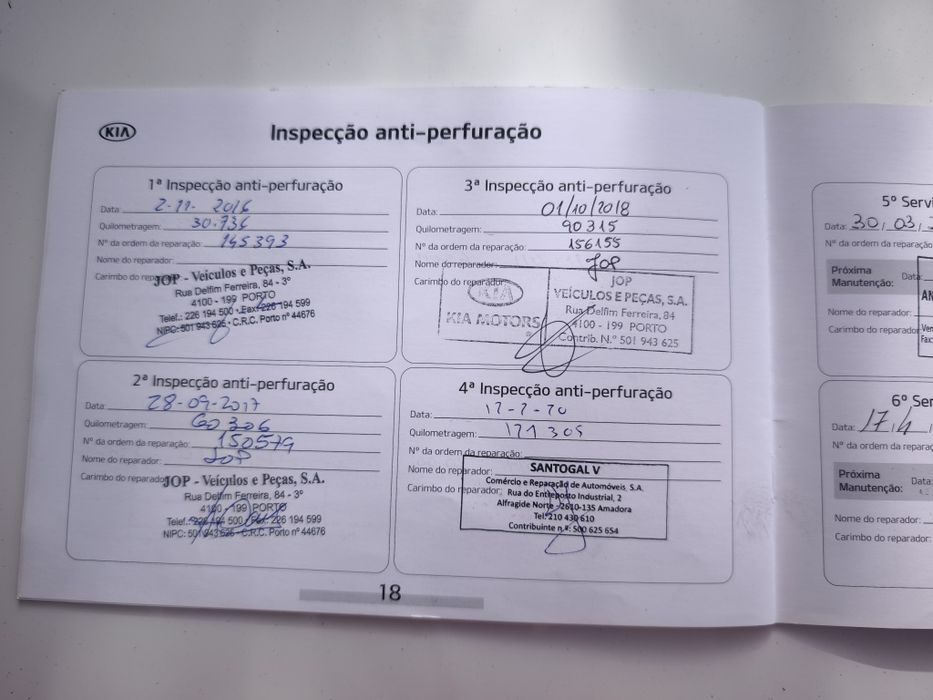 KIA
Inspecção anti-perfuração
1ª Inspecção anti-perfuração
Data: 2-11-2016
Quilometragem: 30.736
Nº da ordem da reparação: 145393
Nome do reparador:
Carimbo do reparador:
JOP - Veículos e Peças, S.A.
Rua Delfim Ferreira, 84 - 3º
4100 - 199 PORTO
Telef.: 226 194 500 • Fax: 226 194 599
NIPC: 501 943 625 • C.R.C. Porto nº 44676
2ª Inspecção anti-perfuração
Data: 28-09-2017
Quilometragem: 60306
Nº da ordem da reparação: 150579
Nome do reparador: JOP
Carimbo do reparador:
JOP - Veículos e Peças, S.A.
Rua Delfim Ferreira, 84 - 3º
4100 - 199 PORTO
Telef.: 226 194 500 / Fax: 226 194 599
NIPC: 501 943 625 - C.R.C. Porto nº 44676
3ª Inspecção anti-perfuração
Data: 01/10/2018
Quilometragem: 90315
Nº da ordem da reparação: 156155
Nome do reparador: JOP
Carimbo do reparador:
KIA
KIA MOTORS
JOP
VEÍCULOS E PEÇAS, S.A.
Rua Delfim Ferreira, 84
4100 - 199 PORTO
Contrib. N.º 501 943 625
4ª Inspecção anti-perfuração
Data:
Quilometragem: 121 305
Nº da ordem da reparação:
Nome do reparador:
Carimbo do reparador:
SANTOGAL V
Comércio e Reparação de Automóveis, S.A.
Rua do Entreposto Industrial, 2
Alfragide Norte - 2610-135 Amadora
Tel: 210 430 610
Contribuinte n.º: 500 625 654
18
5º Servi
Data: 30, 03,
Nº da ordem da reparação
Próxima
Manutenção:
Data:
Nome do reparador:
Carimbo do reparador
AN
Ven
Fax:
6º Ser
Data: 17, 4
Nº da ordem da repara
Próxima
Manutenção:
Data:
Nome do reparador:
Carimbo do reparador: